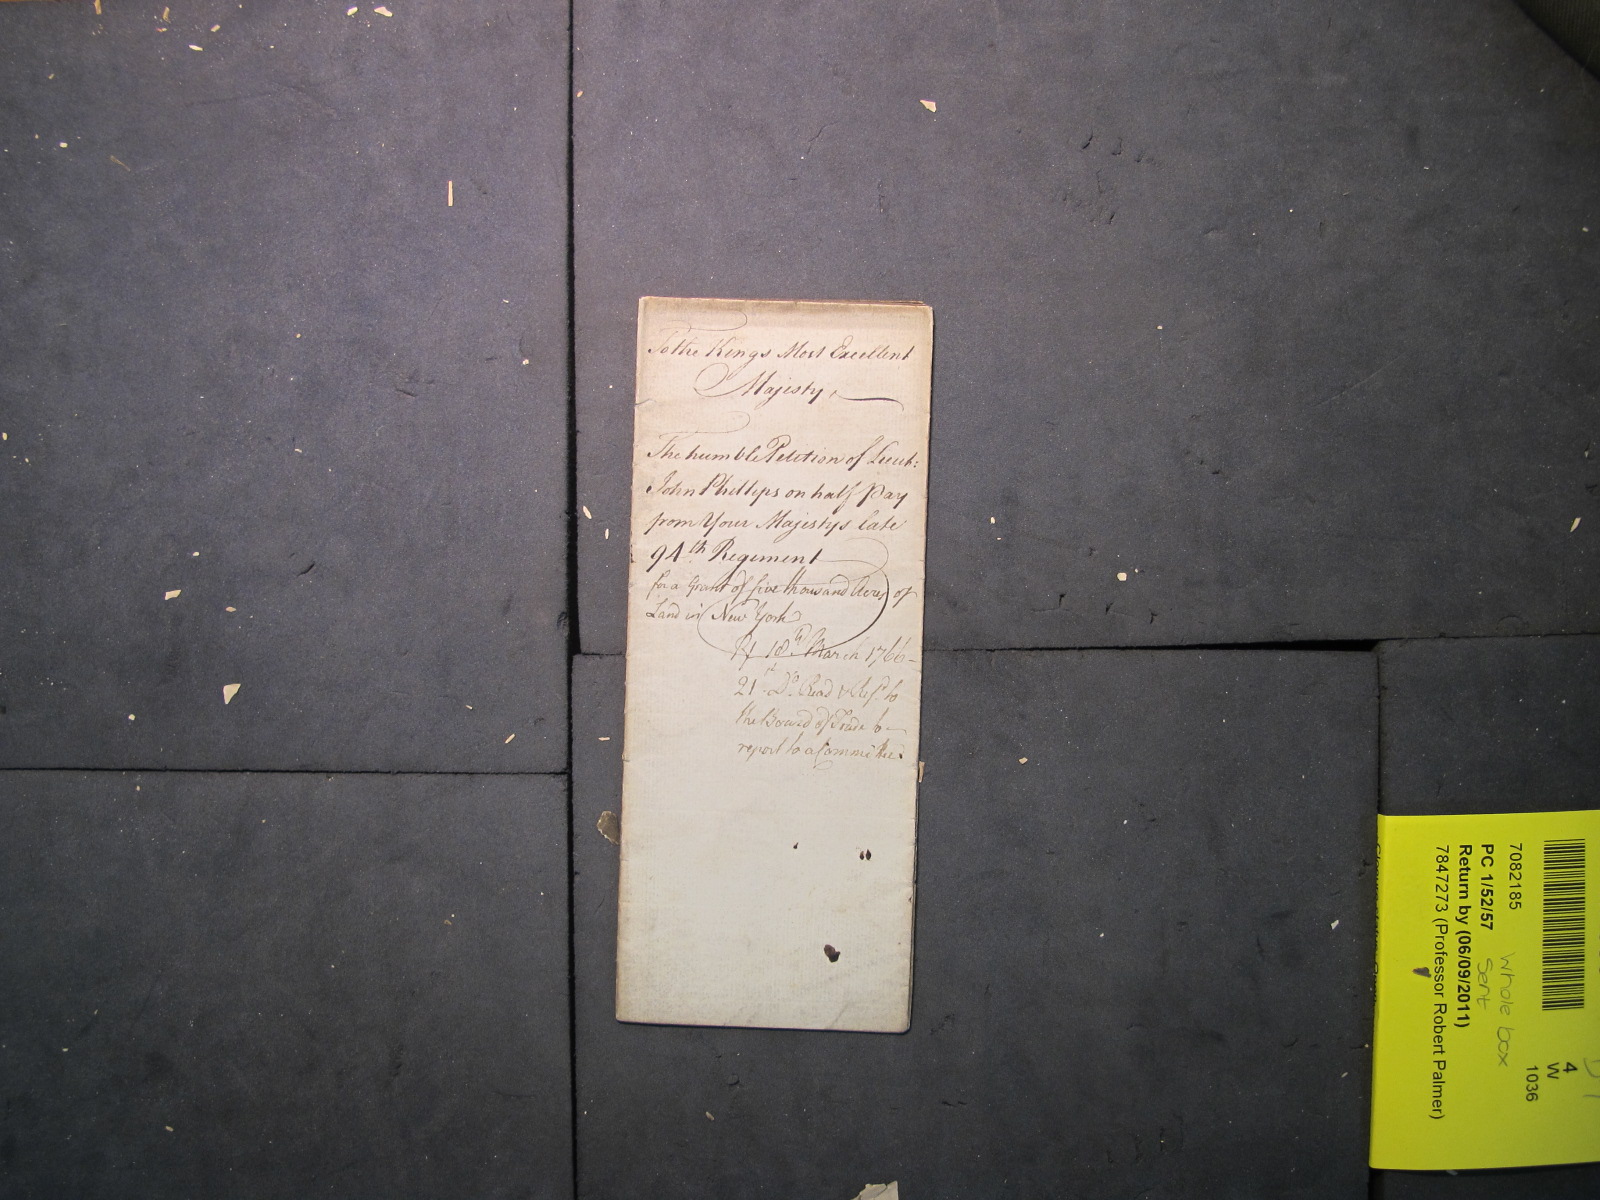 To the Kings Most Excellent
Majesty,
The humble Petition of Lieut:
John Phillips on half Pay
from Your Majestys late
94th Regiment
for a Grant of five thousand Acres of
Land in New York
18th March 1766
21st Do. Read & Ref'd to
the Board of Trade to
report to a Committee.
7082185
PC 1/52/57
Return by (06/09/2011)
7847273 (Professor Robert Palmer)
Whole box
Sent
4
W
1036